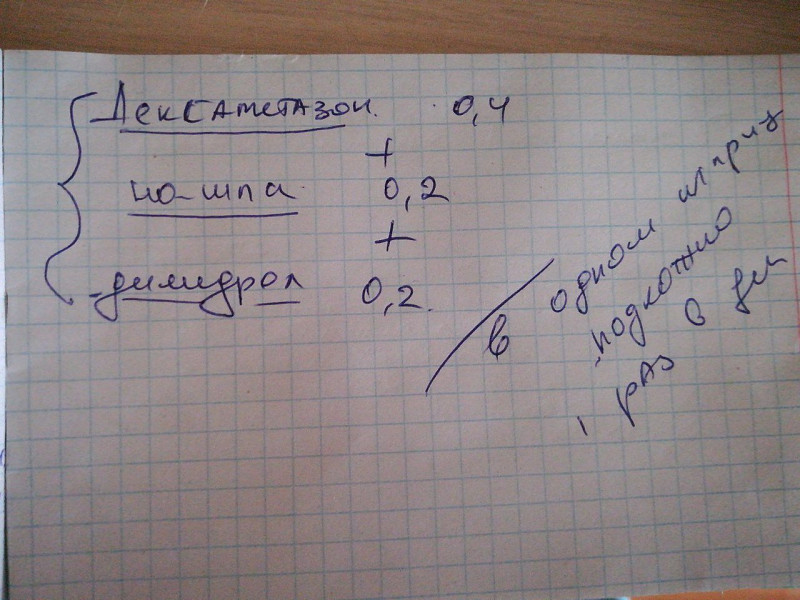 Дексаметазон. 0,4
+
но-шпа 0,2
+
димедрол 0,2.
в одном шприц
подкожно
1 раз в ден